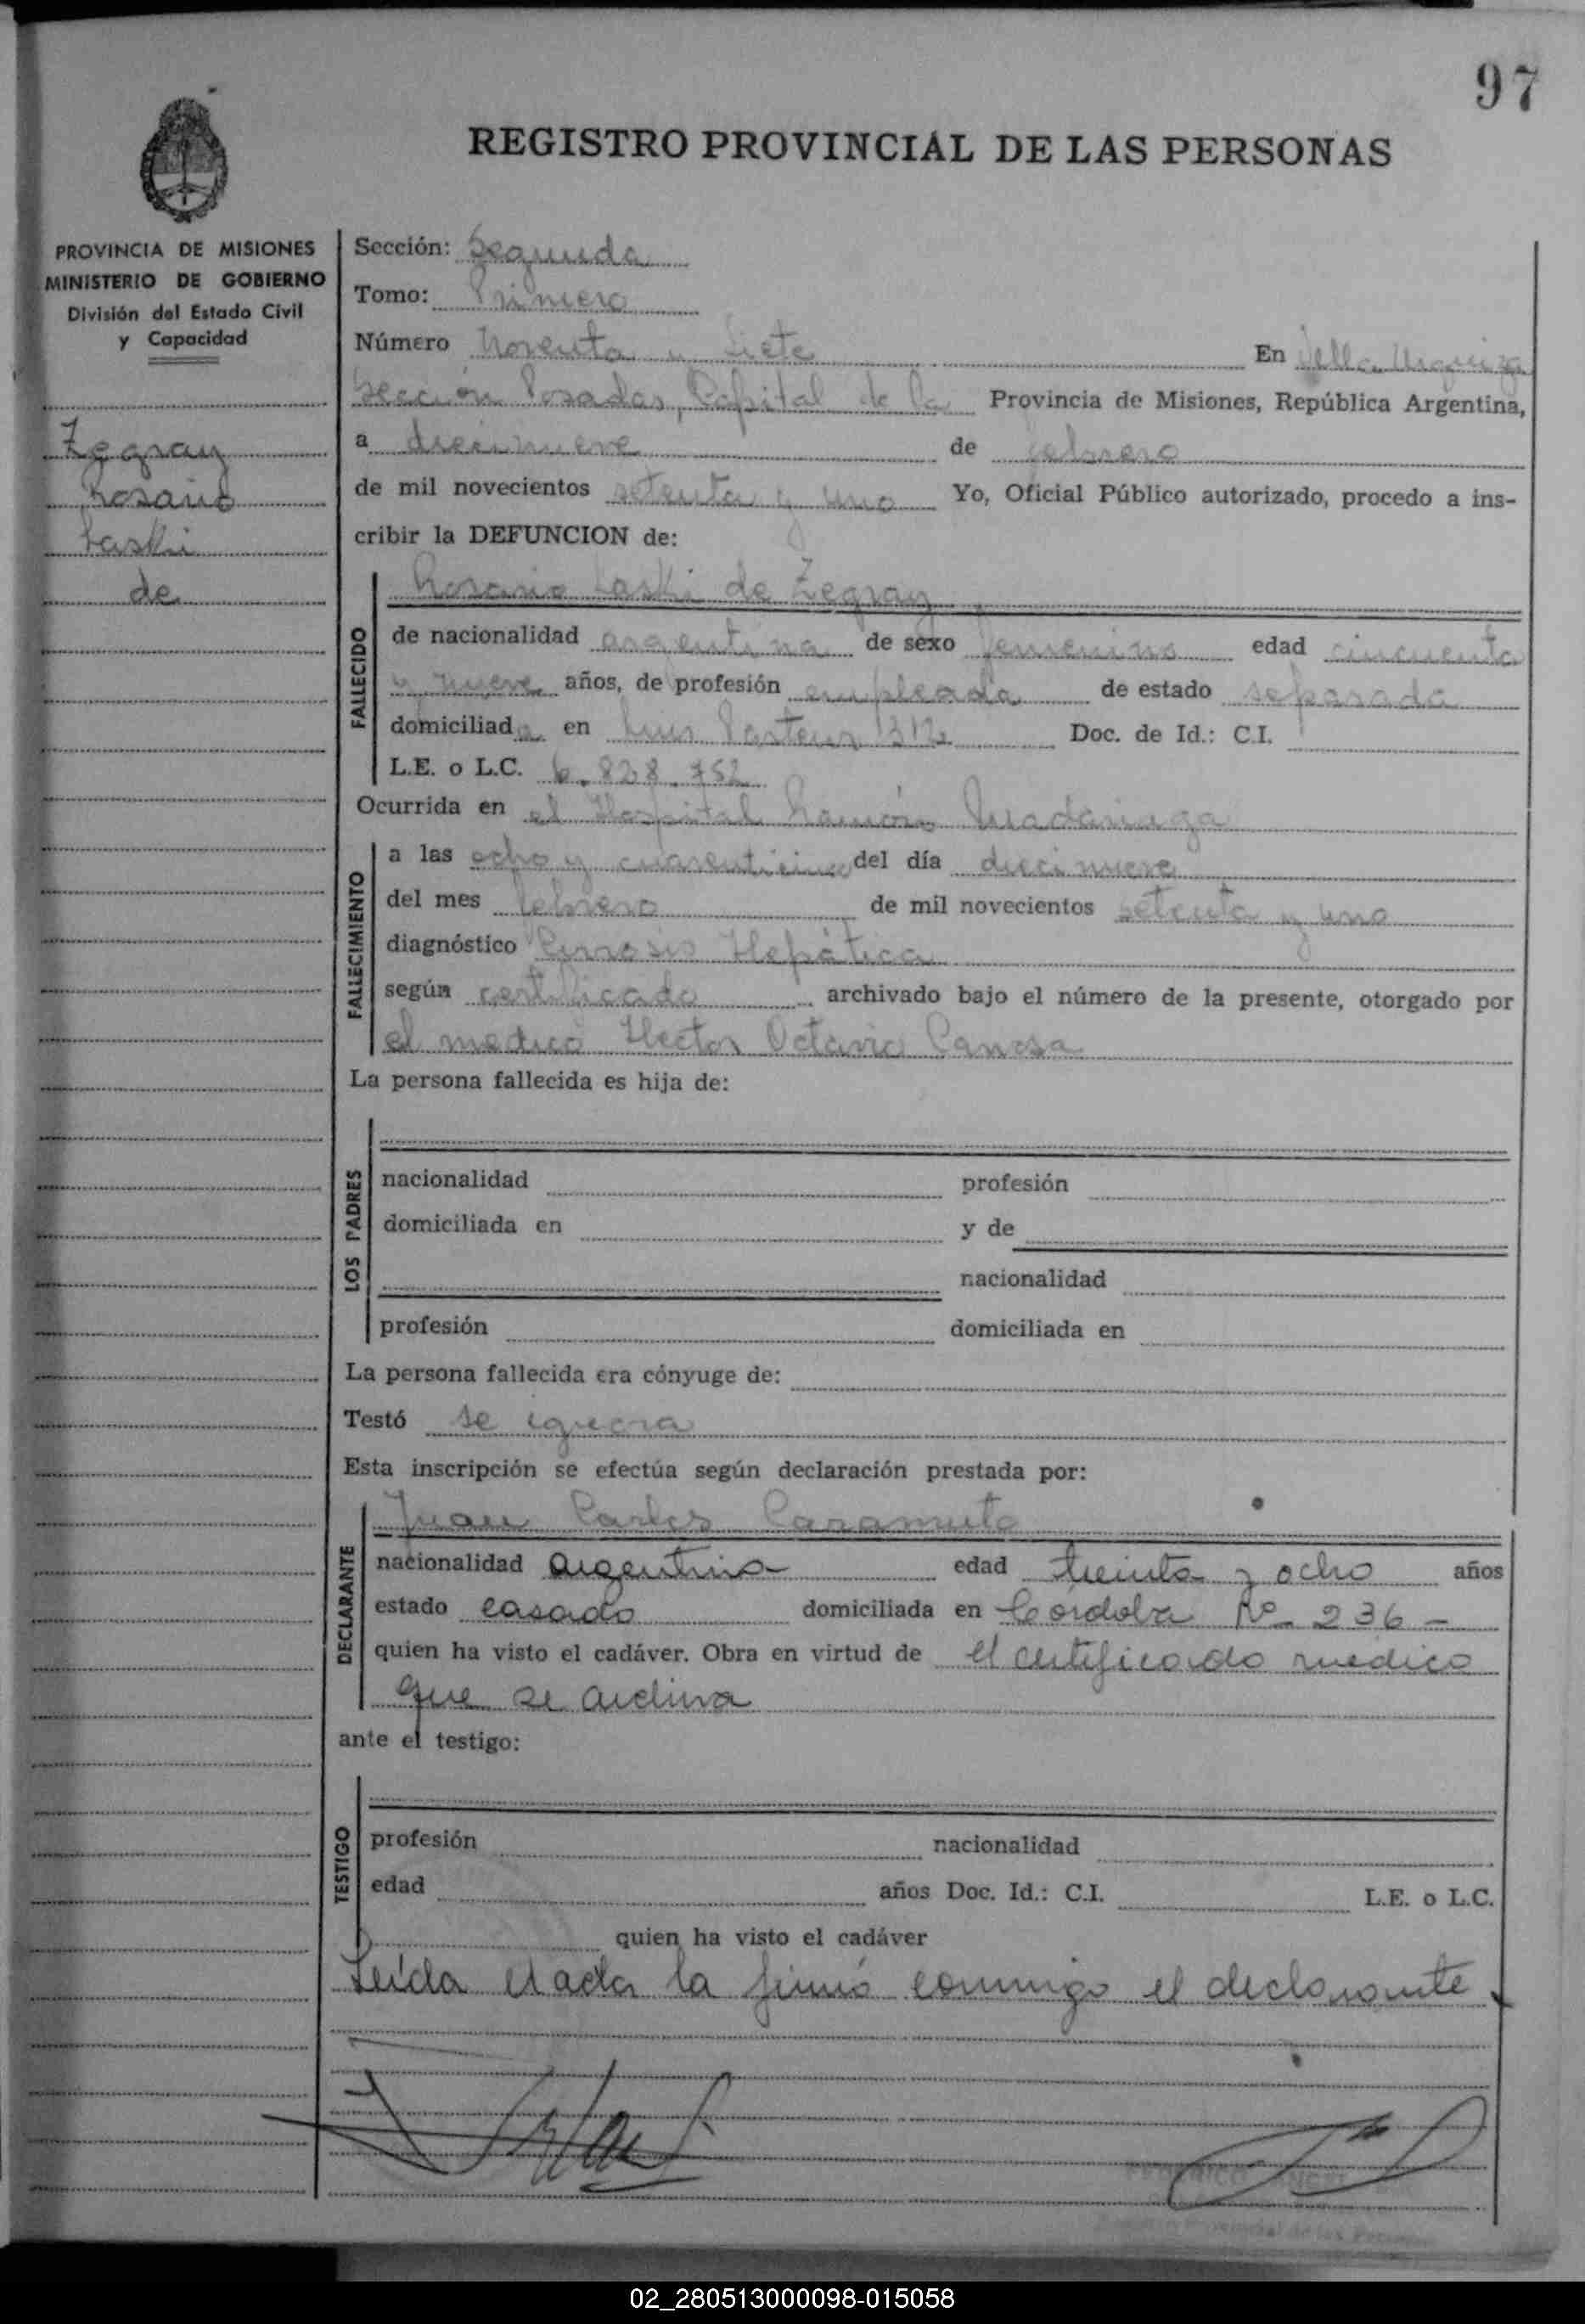 97
REGISTRO PROVINCIAL DE LAS PERSONAS
PROVINCIA DE MISIONES
MINISTERIO DE GOBIERNO
División del Estado Civil
y Capacidad
Zegray
Rosario
Laski
de
Sección: Segunda
Tomo: Primero
Número Noventa y Siete En Villa Urquiza
Sección Posadas, Capital de la Provincia de Misiones, República Argentina,
a diecinueve de febrero
de mil novecientos setenta y uno Yo, Oficial Público autorizado, procedo a ins-
cribir la DEFUNCION de:
FALLECIDO
Rosario Laski de Zegray
de nacionalidad argentina de sexo femenino edad cincuenta
y nueve años, de profesión empleada de estado separada
domiciliada en Luis Pasteur 312 Doc. de Id.: C.I.
L.E. o L.C. 6.828.752
Ocurrida en el Hospital Ramón Madariaga
FALLECIMIENTO
a las ocho y del día diecinueve
del mes febrero de mil novecientos setenta y uno
diagnóstico Cirrosis Hepática
según certificado archivado bajo el número de la presente, otorgado por
el medico Hector Octavio Canosa
La persona fallecida es hija de:
LOS PADRES
nacionalidad profesión
domiciliada en y de
nacionalidad
profesión domiciliada en
La persona fallecida era cónyuge de:
Testó se ignora
Esta inscripción se efectúa según declaración prestada por:
DECLARANTE
Juan Carlos Caramuto
nacionalidad argentina edad treinta y ocho años
estado casado domiciliada en Cordoba Nº 236 -
quien ha visto el cadáver. Obra en virtud de el certificado medico
que se archiva
ante el testigo:
TESTIGO
profesión nacionalidad
edad años Doc. Id.: C.I. L.E. o L.C.
quien ha visto el cadáver
Leída el acta la firmó conmigo el declarante
02_280513000098-015058